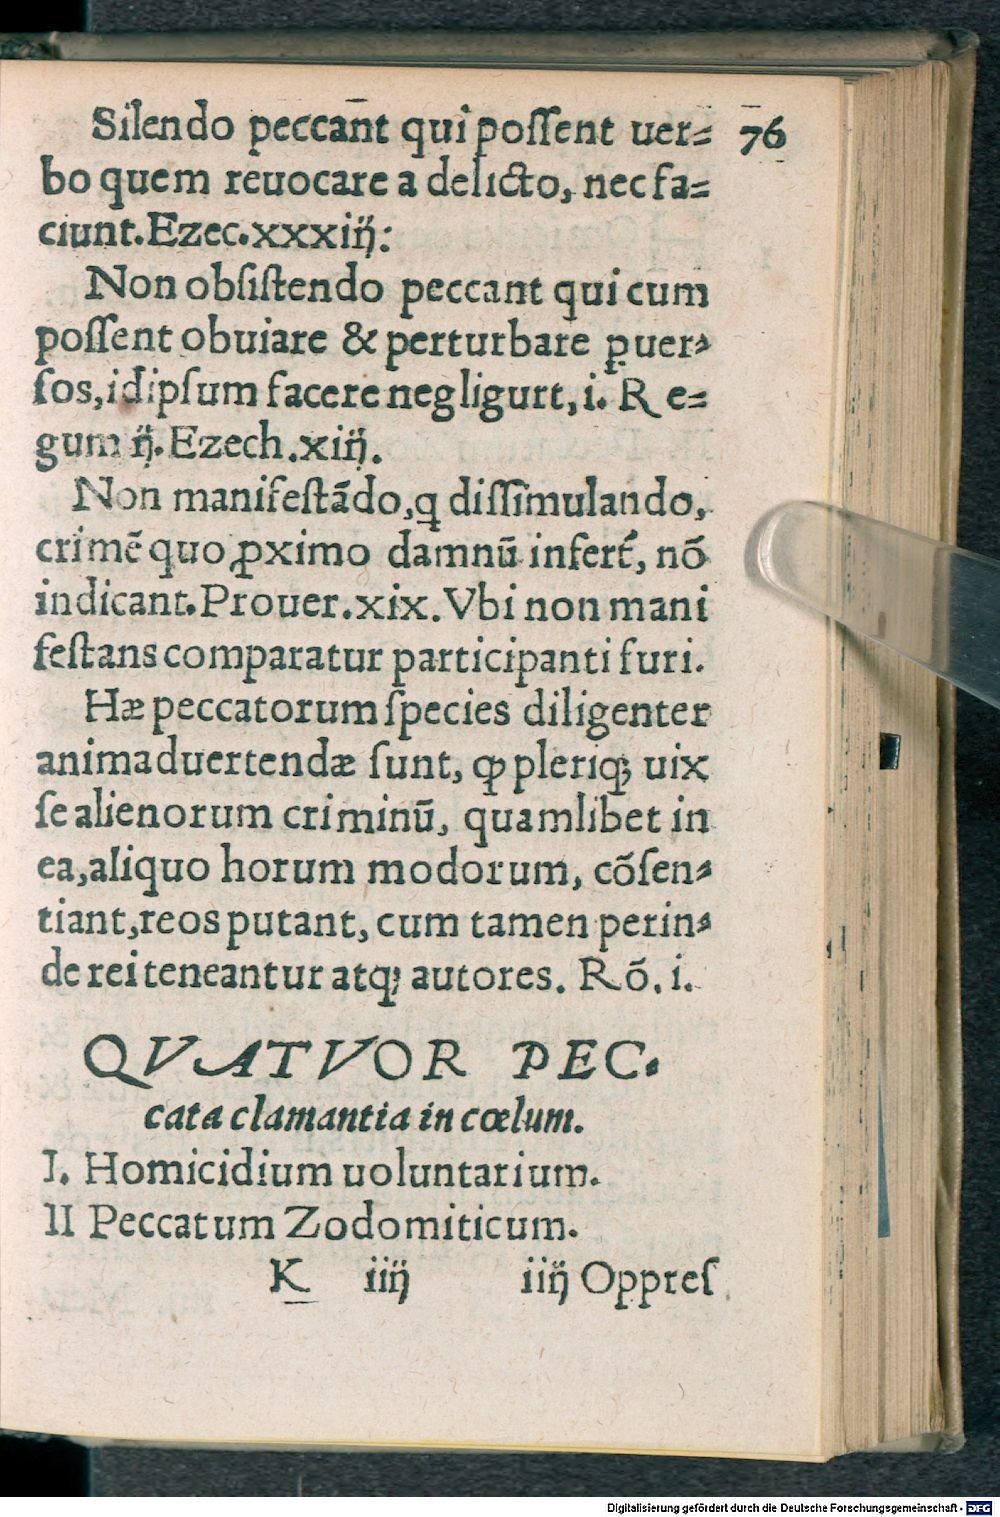 Silendo peccant qui poſſent uer= 76
bo quem reuocare a delicto, nec fa=
ciunt. Ezec. xxxiiij:
Non obſiſtendo peccant qui cum
poſſent obuiare & perturbare ꝑuer=
ſos, idipſum facere negligurt, i. Re=
gum ij. Ezech. xiij.
Non manifeſtādo, q diſſimulando,
crimē quo ꝓximo damnū infert́, nō
indicant. Prouer. xix. Vbi non mani
feſtans comparatur participanti furi.
Hæ peccatorum ſpecies diligenter
animaduertendæ ſunt, ꝙ pleriqꝫ uix
ſe alienorum criminū, quamlibet in
ea, aliquo horum modorum, cōſen=
tiant, reos putant, cum tamen perin=
de rei teneantur atqꝫ autores. Rō. i.
QVATVOR PEC.
cata clamantia in cœlum.
I. Homicidium uoluntarium.
II Peccatum Zodomiticum.
K iiij iiij Oppreſ
Digitalisierung gefördert durch die Deutsche Forschungsgemeinschaft - DFG